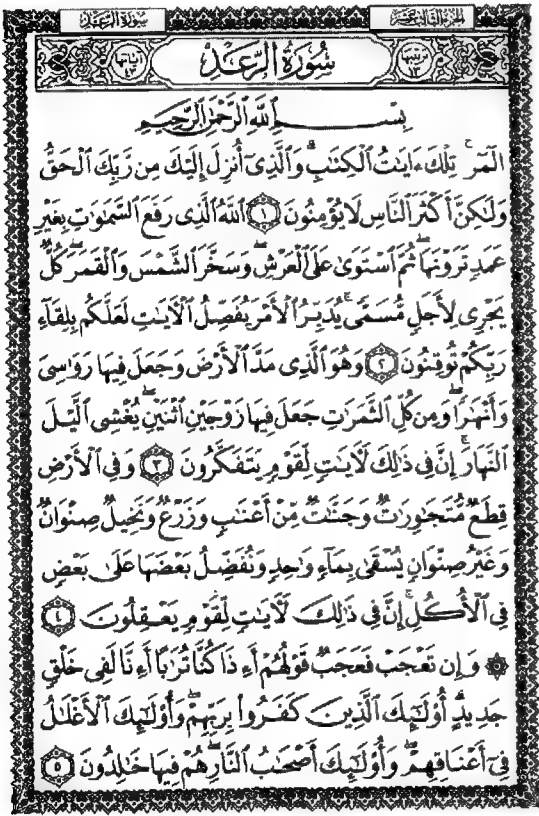 سُورَةُ الرَّعْدِ
الجزء الثالث عشر
ترتيبها ١٣
سُورَةُ الرَّعْدِ
آياتها ٤٣
بِسْمِ ٱللَّهِ ٱلرَّحْمَٰنِ ٱلرَّحِيمِ
الٓمٓر ۚ تِلْكَ ءَايَٰتُ ٱلْكِتَٰبِ ۗ وَٱلَّذِىٓ أُنزِلَ إِلَيْكَ مِن رَّبِّكَ ٱلْحَقُّ
وَلَٰكِنَّ أَكْثَرَ ٱلنَّاسِ لَا يُؤْمِنُونَ ١ ٱللَّهُ ٱلَّذِى رَفَعَ ٱلسَّمَٰوَٰتِ بِغَيْرِ
عَمَدٍ تَرَوْنَهَا ۖ ثُمَّ ٱسْتَوَىٰ عَلَى ٱلْعَرْشِ ۖ وَسَخَّرَ ٱلشَّمْسَ وَٱلْقَمَرَ ۖ كُلٌّ
يَجْرِى لِأَجَلٍ مُّسَمًّى ۚ يُدَبِّرُ ٱلْأَمْرَ يُفَصِّلُ ٱلْءَايَٰتِ لَعَلَّكُم بِلِقَآءِ
رَبِّكُمْ تُوقِنُونَ ٢ وَهُوَ ٱلَّذِى مَدَّ ٱلْأَرْضَ وَجَعَلَ فِيهَا رَوَٰسِىَ
وَأَنْهَٰرًا ۖ وَمِن كُلِّ ٱلثَّمَرَٰتِ جَعَلَ فِيهَا زَوْجَيْنِ ٱثْنَيْنِ ۖ يُغْشِى ٱلَّيْلَ
ٱلنَّهَارَ ۚ إِنَّ فِى ذَٰلِكَ لَءَايَٰتٍ لِّقَوْمٍ يَتَفَكَّرُونَ ٣ وَفِى ٱلْأَرْضِ
قِطَعٌ مُّتَجَٰوِرَٰتٌ وَجَنَّٰتٌ مِّنْ أَعْنَٰبٍ وَزَرْعٌ وَنَخِيلٌ صِنْوَانٌ
وَغَيْرُ صِنْوَانٍ يُسْقَىٰ بِمَآءٍ وَٰحِدٍ وَنُفَضِّلُ بَعْضَهَا عَلَىٰ بَعْضٍ
فِى ٱلْأُكُلِ ۚ إِنَّ فِى ذَٰلِكَ لَءَايَٰتٍ لِّقَوْمٍ يَعْقِلُونَ ٤
۞ وَإِن تَعْجَبْ فَعَجَبٌ قَوْلُهُمْ أَءِذَا كُنَّا تُرَٰبًا أَءِنَّا لَفِى خَلْقٍ
جَدِيدٍ ۗ أُو۟لَٰٓئِكَ ٱلَّذِينَ كَفَرُوا۟ بِرَبِّهِمْ ۖ وَأُو۟لَٰٓئِكَ ٱلْأَغْلَٰلُ
فِىٓ أَعْنَاقِهِمْ ۖ وَأُو۟لَٰٓئِكَ أَصْحَٰبُ ٱلنَّارِ ۖ هُمْ فِيهَا خَٰلِدُونَ ٥